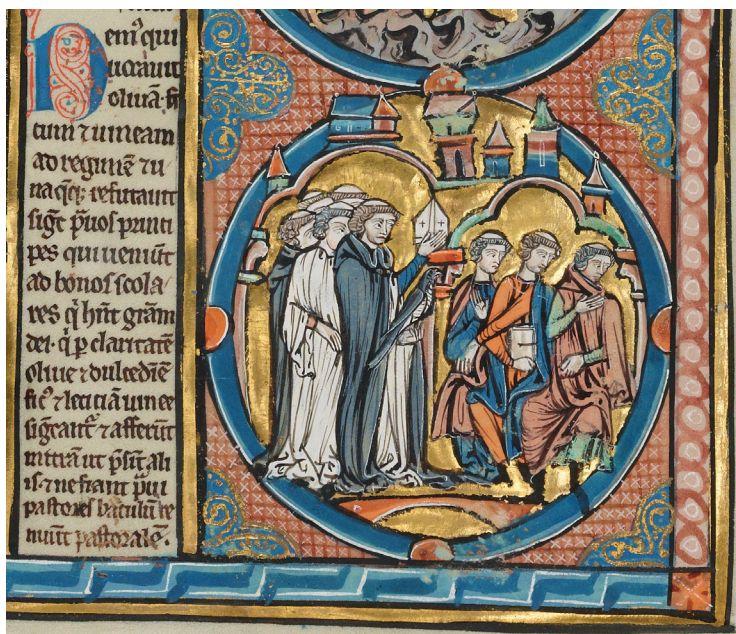 hem̄ qui
uocauit
oliuā fi
cum ⁊ uineam
ad regimē ⁊ u
naq̄q; refutauit
sigt̄ p̄uos princi
pes qui ueniūt
ad bonos scola
res q̄ hn̄t grām
dei. q̄ p claritatē
oliue ⁊ dulcediē
fic̄ ⁊ leticiā uinee
siḡcant᷑ ⁊ afferūt
mitrā ut p̄sīt ali
is ⁊ ne fiant p̄ui
pastores baculū re
nuūt pastoralē.